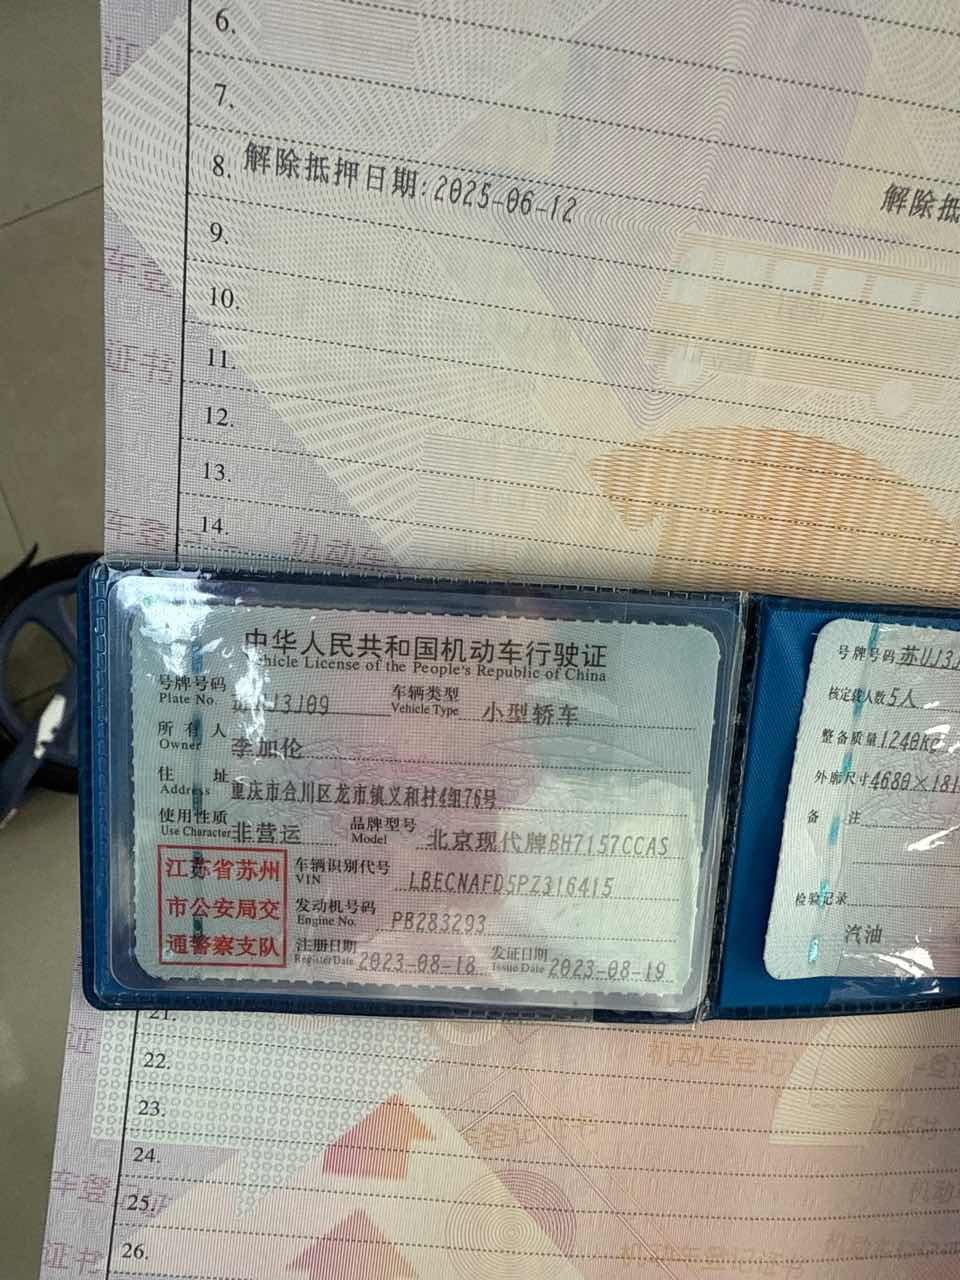 6.
7.
8. 解除抵押日期:2025-06-12 解除抵
9.
10.
11.
12.
13.
14.
机动车
车登
证书
中华人民共和国机动车行驶证
Vehicle License of the People's Republic of China
号牌号码 Plate No. 苏UJ3J09 车辆类型 Vehicle Type 小型轿车
所有人 Owner 李加伦
住址 Address 重庆市合川区龙市镇义和村4组76号
使用性质 Use Character 非营运 品牌型号 Model 北京现代牌BH7157CCAS
江苏省苏州
市公安局交
通警察支队
车辆识别代号 VIN LBECNAFD5PZ316415
发动机号码 Engine No. PB283293
注册日期 Register Date 2023-08-18 发证日期 Issue Date 2023-08-19
号牌号码 苏UJ3J
核定载人数 5人
整备质量 1240Kg
外廓尺寸 4680×181
备注
检验记录
汽油
21.
22.
23.
24.
25.
26.
机动车登记
车登
证书